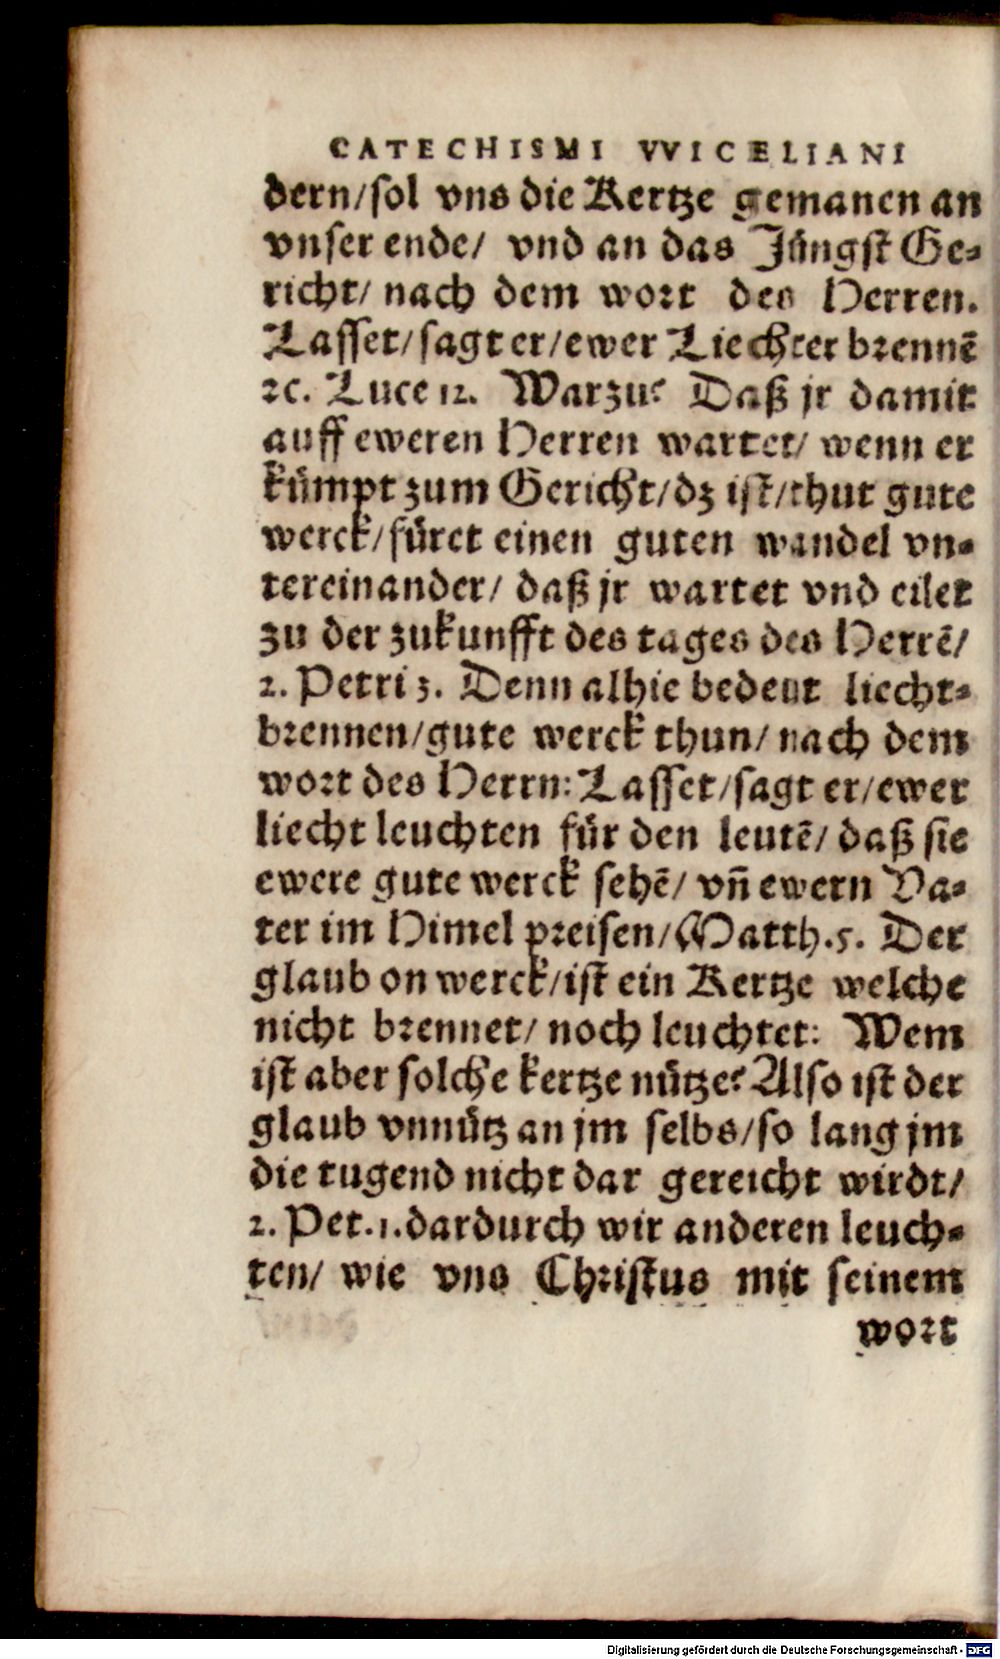 CATECHISMI VVICELIANI
dern/sol vns die Kertze gemanen an
vnser ende/ vnd an das Jüngst Ge-
richt/ nach dem wort des Herren.
Lasset/sagt er/ewer Liechter brennẽ
ꝛc. Luce 12. Warzu? Daß jr damit
auff eweren Herren wartet/ wenn er
kümpt zum Gericht/dz ist/thut gute
werck/füret einen guten wandel vn-
tereinander/ daß jr wartet vnd eilet
zu der zukunfft des tages des Herrẽ/
2. Petri 3. Denn alhie bedeut liecht-
brennen/gute werck thun/ nach dem
wort des Herrn: Lasset/sagt er/ewer
liecht leuchten für den leutẽ/ daß sie
ewere gute werck sehẽ/ vñ ewern Va-
ter im Himel preisen/Matth.5. Der
glaub on werck/ist ein Kertze welche
nicht brennet/ noch leuchtet: Wem
ist aber solche kertze nütze? Also ist der
glaub vnnütz an jm selbs/so lang jm
die tugend nicht dar gereicht wirdt/
2. Pet.1.dardurch wir anderen leuch-
ten/ wie vns Christus mit seinem
wort
Digitalisierung gefördert durch die Deutsche Forschungsgemeinschaft - DFG